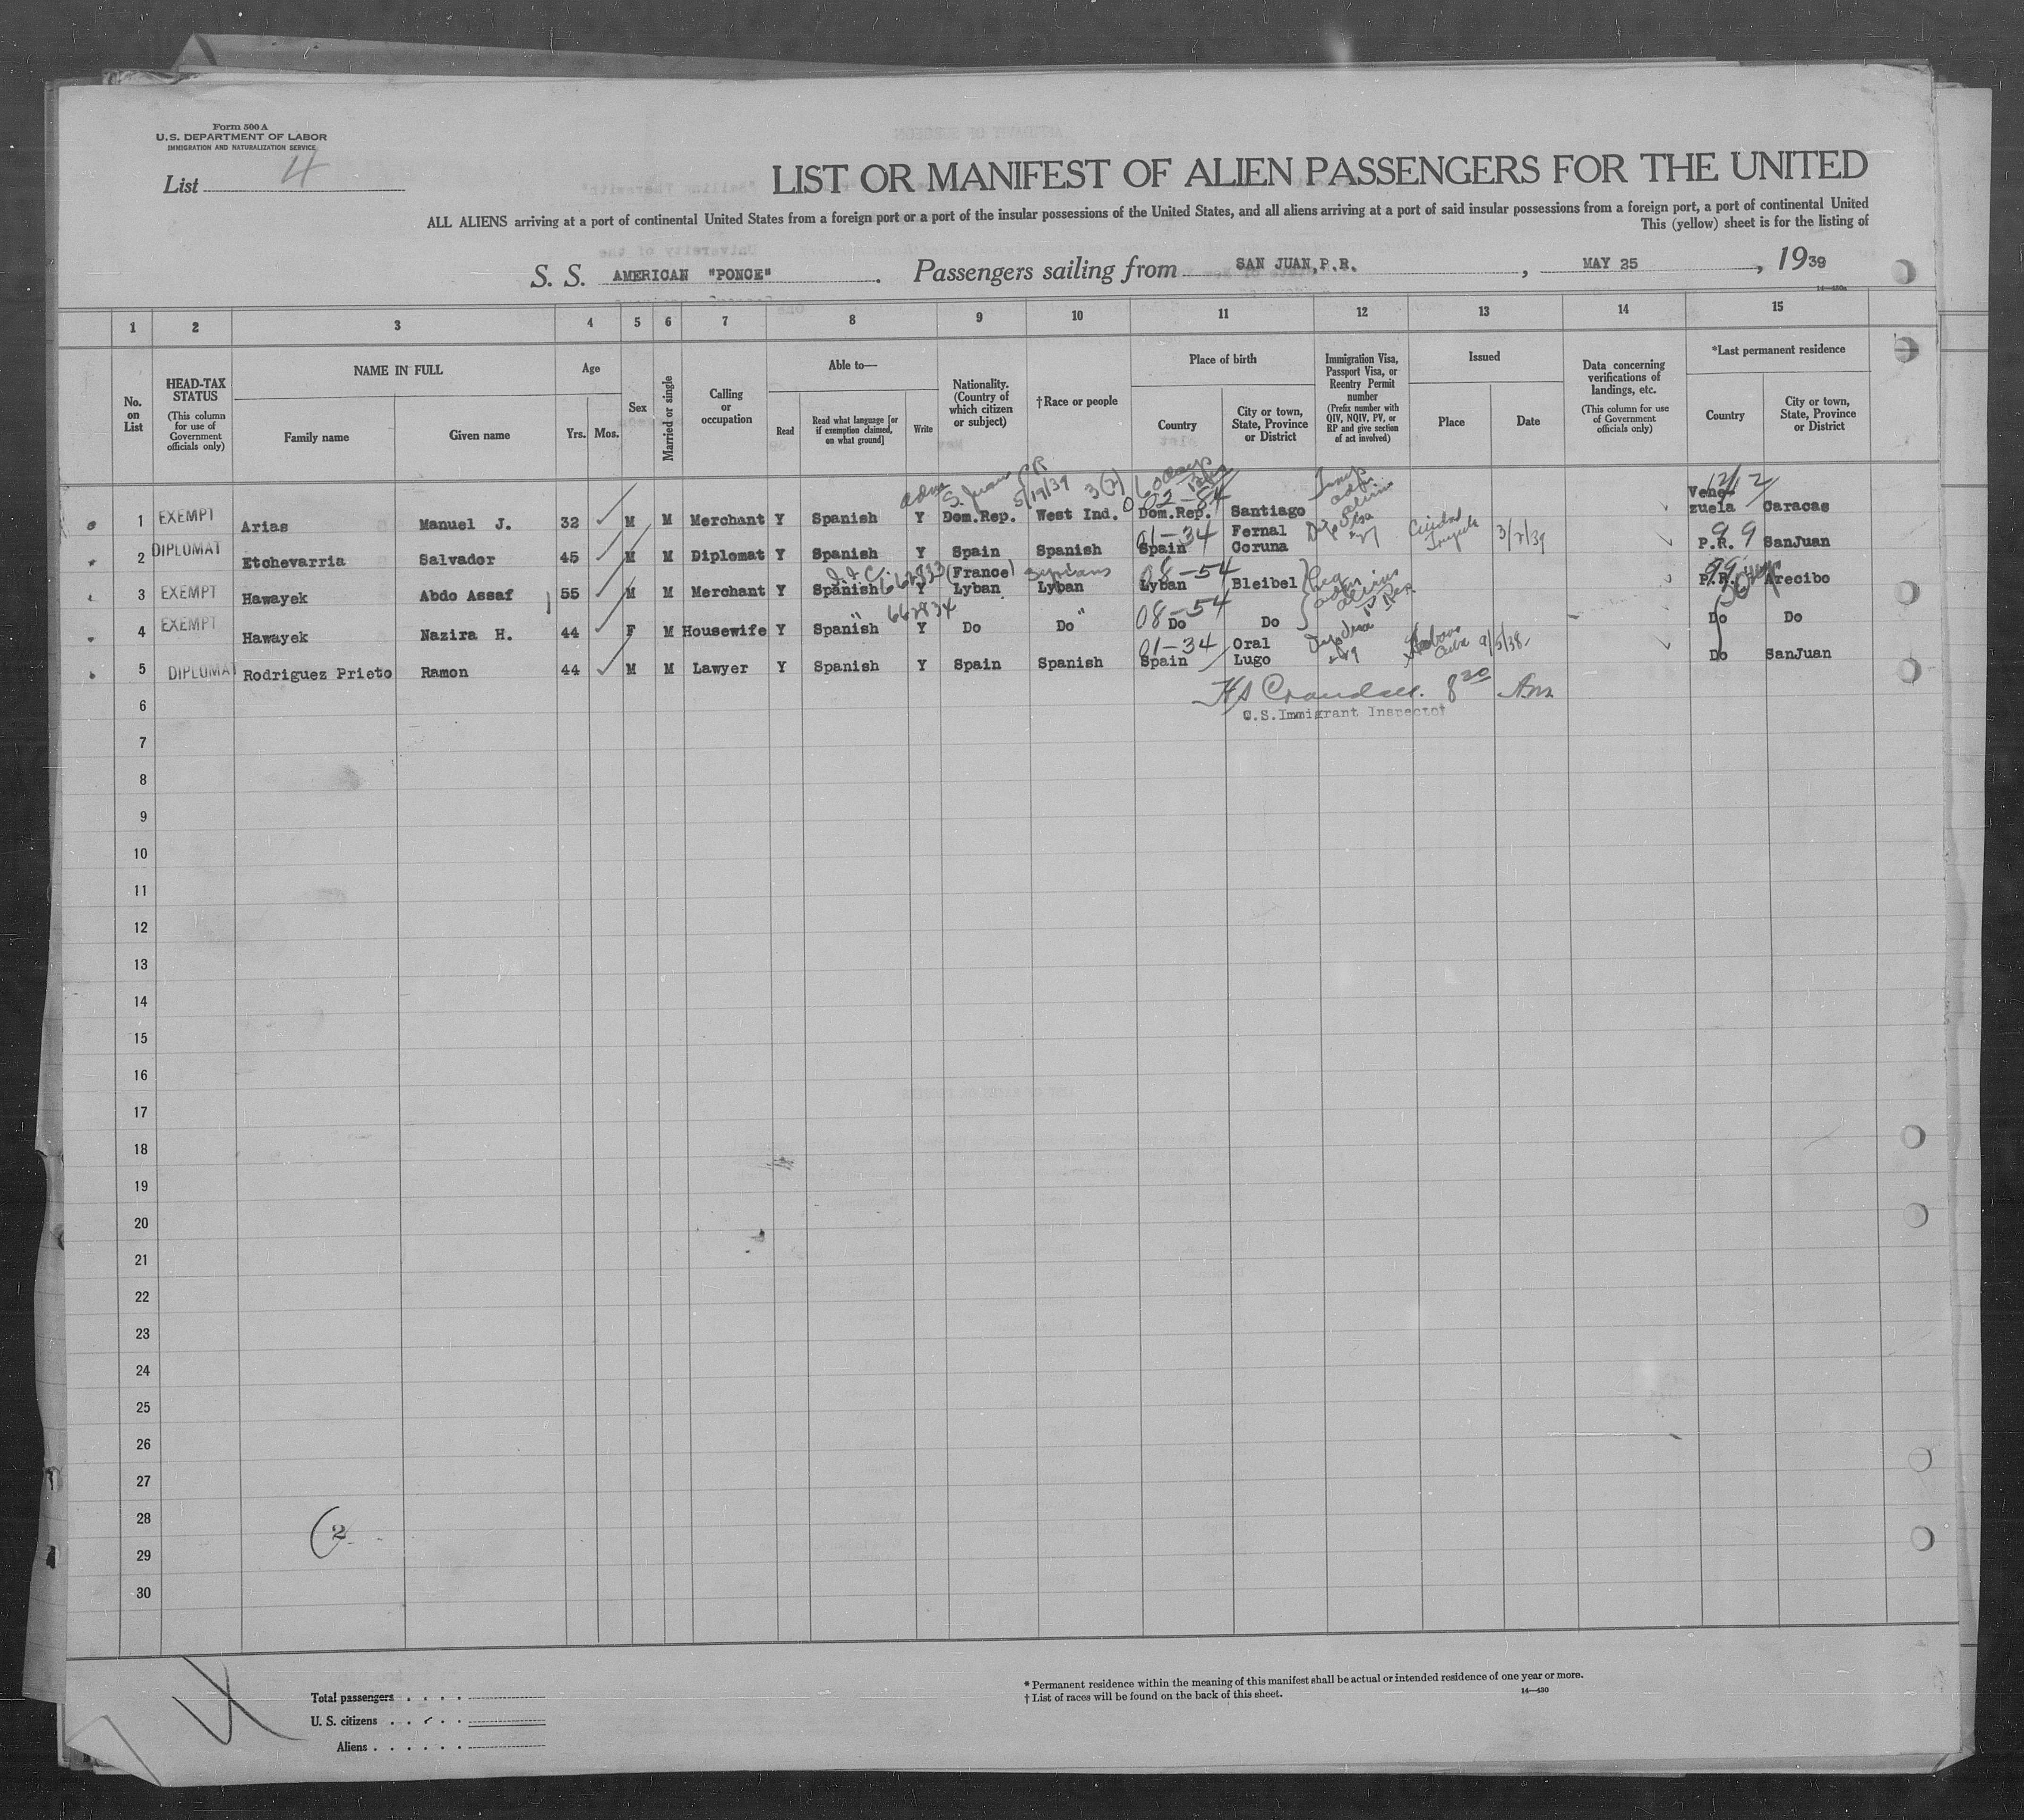 Form 500 A
U. S. DEPARTMENT OF LABOR
IMMIGRATION AND NATURALIZATION SERVICE
List 4
LIST OR MANIFEST OF ALIEN PASSENGERS FOR THE UNITED
ALL ALIENS arriving at a port of continental United States from a foreign port or a port of the insular possessions of the United States, and all aliens arriving at a port of said insular possessions from a foreign port, a port of continental United
This (yellow) sheet is for the listing of
S. S. AMERICAN "PONCE". Passengers sailing from SAN JUAN,P.R., MAY 25, 1939
1 2 3 4 5 6 7 8 9 10 11 12 13 14 15
No. on List
HEAD-TAX STATUS (This column for use of Government officials only)
NAME IN FULL
Family name Given name
Age
Yrs. Mos.
Sex
Married or single
Calling or occupation
Able to—
Read Read what language [or if exemption claimed, on what ground] Write
Nationality. (Country of which citizen or subject)
†Race or people
Place of birth
Country City or town, State, Province or District
Immigration Visa, Passport Visa, or Reentry Permit number (Prefix number with QIV, NQIV, PV, or RP and give section of act involved)
Issued
Place Date
Data concerning verifications of landings, etc. (This column for use of Government officials only)
*Last permanent residence
Country City or town, State, Province or District
adm S. Juan PR 5/19/39 3(2) 60 days
02-84
1 EXEMPT Arias Manuel J. 32 M M Merchant Y Spanish Y Dom.Rep. West Ind. Dom.Rep. Santiago Vene-zuela Caracas
01-34 99
2 DIPLOMAT Etchevarria Salvador 45 M M Diplomat Y Spanish Y Spain Spanish Spain Fernal Coruna Ciudad Trujillo 3/7/39 P.R. SanJuan
662833 (France) Syrians 08-54 99
3 EXEMPT Hawayek Abdo Assaf 55 M M Merchant Y Spanish Y Lyban Lyban Lyban Bleibel P.R. Arecibo
" 662834 " 08-54
4 EXEMPT Hawayek Nazira H. 44 F M Housewife Y Spanish Y Do Do Do Do Do Do
01-34
5 DIPLOMAT Rodriguez Prieto Ramon 44 M M Lawyer Y Spanish Y Spain Spanish Spain Oral Lugo Habana Cuba 9/5/38 Do SanJuan
6 HS Crandall. 8 20 Am
U.S.Immigrant Inspector
7
8
9
10
11
12
13
14
15
16
17
18
19
20
21
22
23
24
25
26
27
28
(2
29
30
Total passengers
U. S. citizens
Aliens
* Permanent residence within the meaning of this manifest shall be actual or intended residence of one year or more.
† List of races will be found on the back of this sheet.
14—430